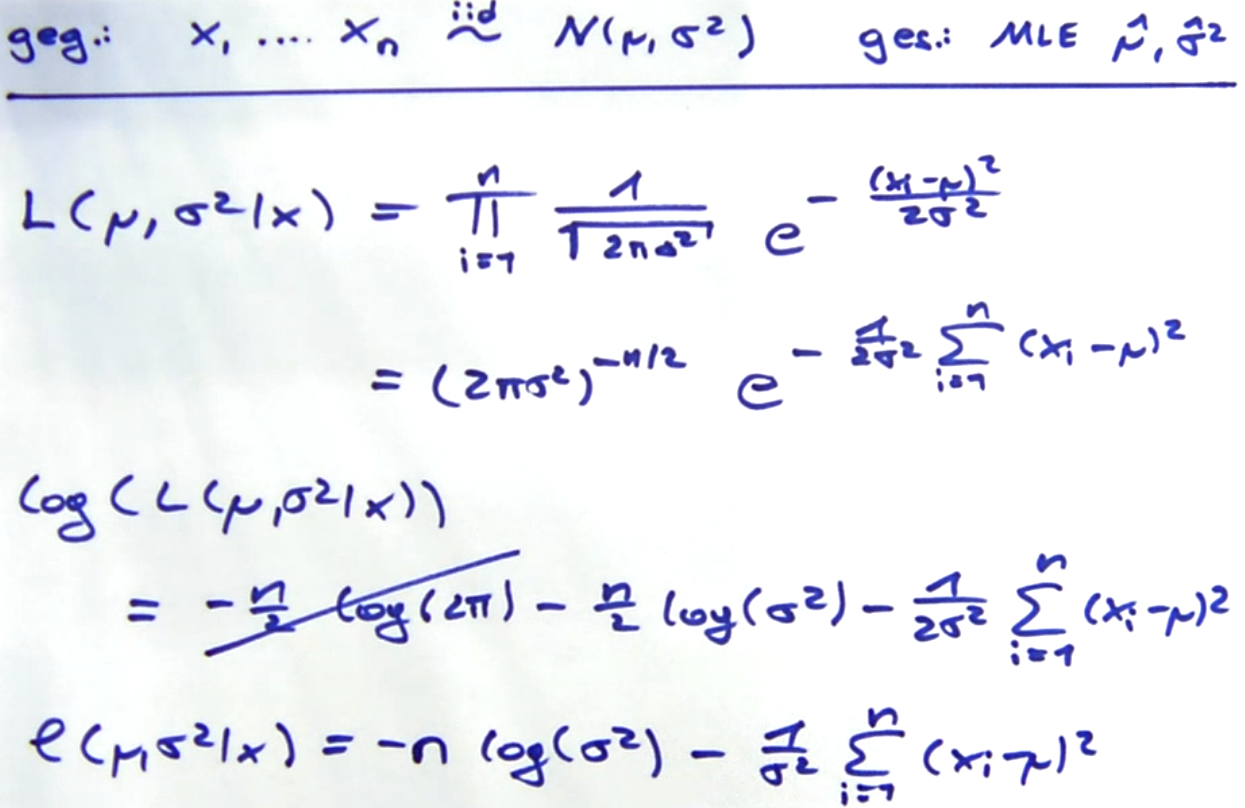 geg.: x₁ .... xₙ iid ~ N(μ, σ²) ges.: MLE μ̂, σ̂²
L(μ, σ²|x) = ∏ᵢ₌₁ⁿ 1/√(2πσ²) e^(-(xᵢ-μ)²/(2σ²))
= (2πσ²)^(-n/2) e^(-1/(2σ²) ∑ᵢ₌₁ⁿ (xᵢ-μ)²)
log(L(μ,σ²|x))
= -n/2 log(2π) - n/2 log(σ²) - 1/(2σ²) ∑ᵢ₌₁ⁿ (xᵢ-μ)²
ℓ(μ,σ²|x) = -n log(σ²) - 1/σ² ∑ᵢ₌₁ⁿ (xᵢ-μ)²